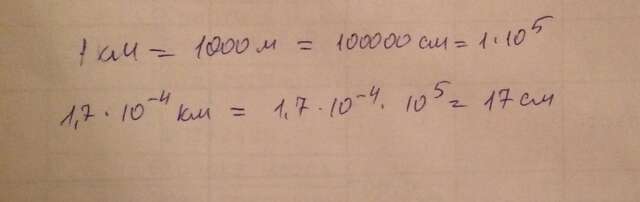 1 км = 1000 м = 100000 см = 1·10⁵
1,7·10⁻⁴ км = 1,7·10⁻⁴·10⁵ = 17 см